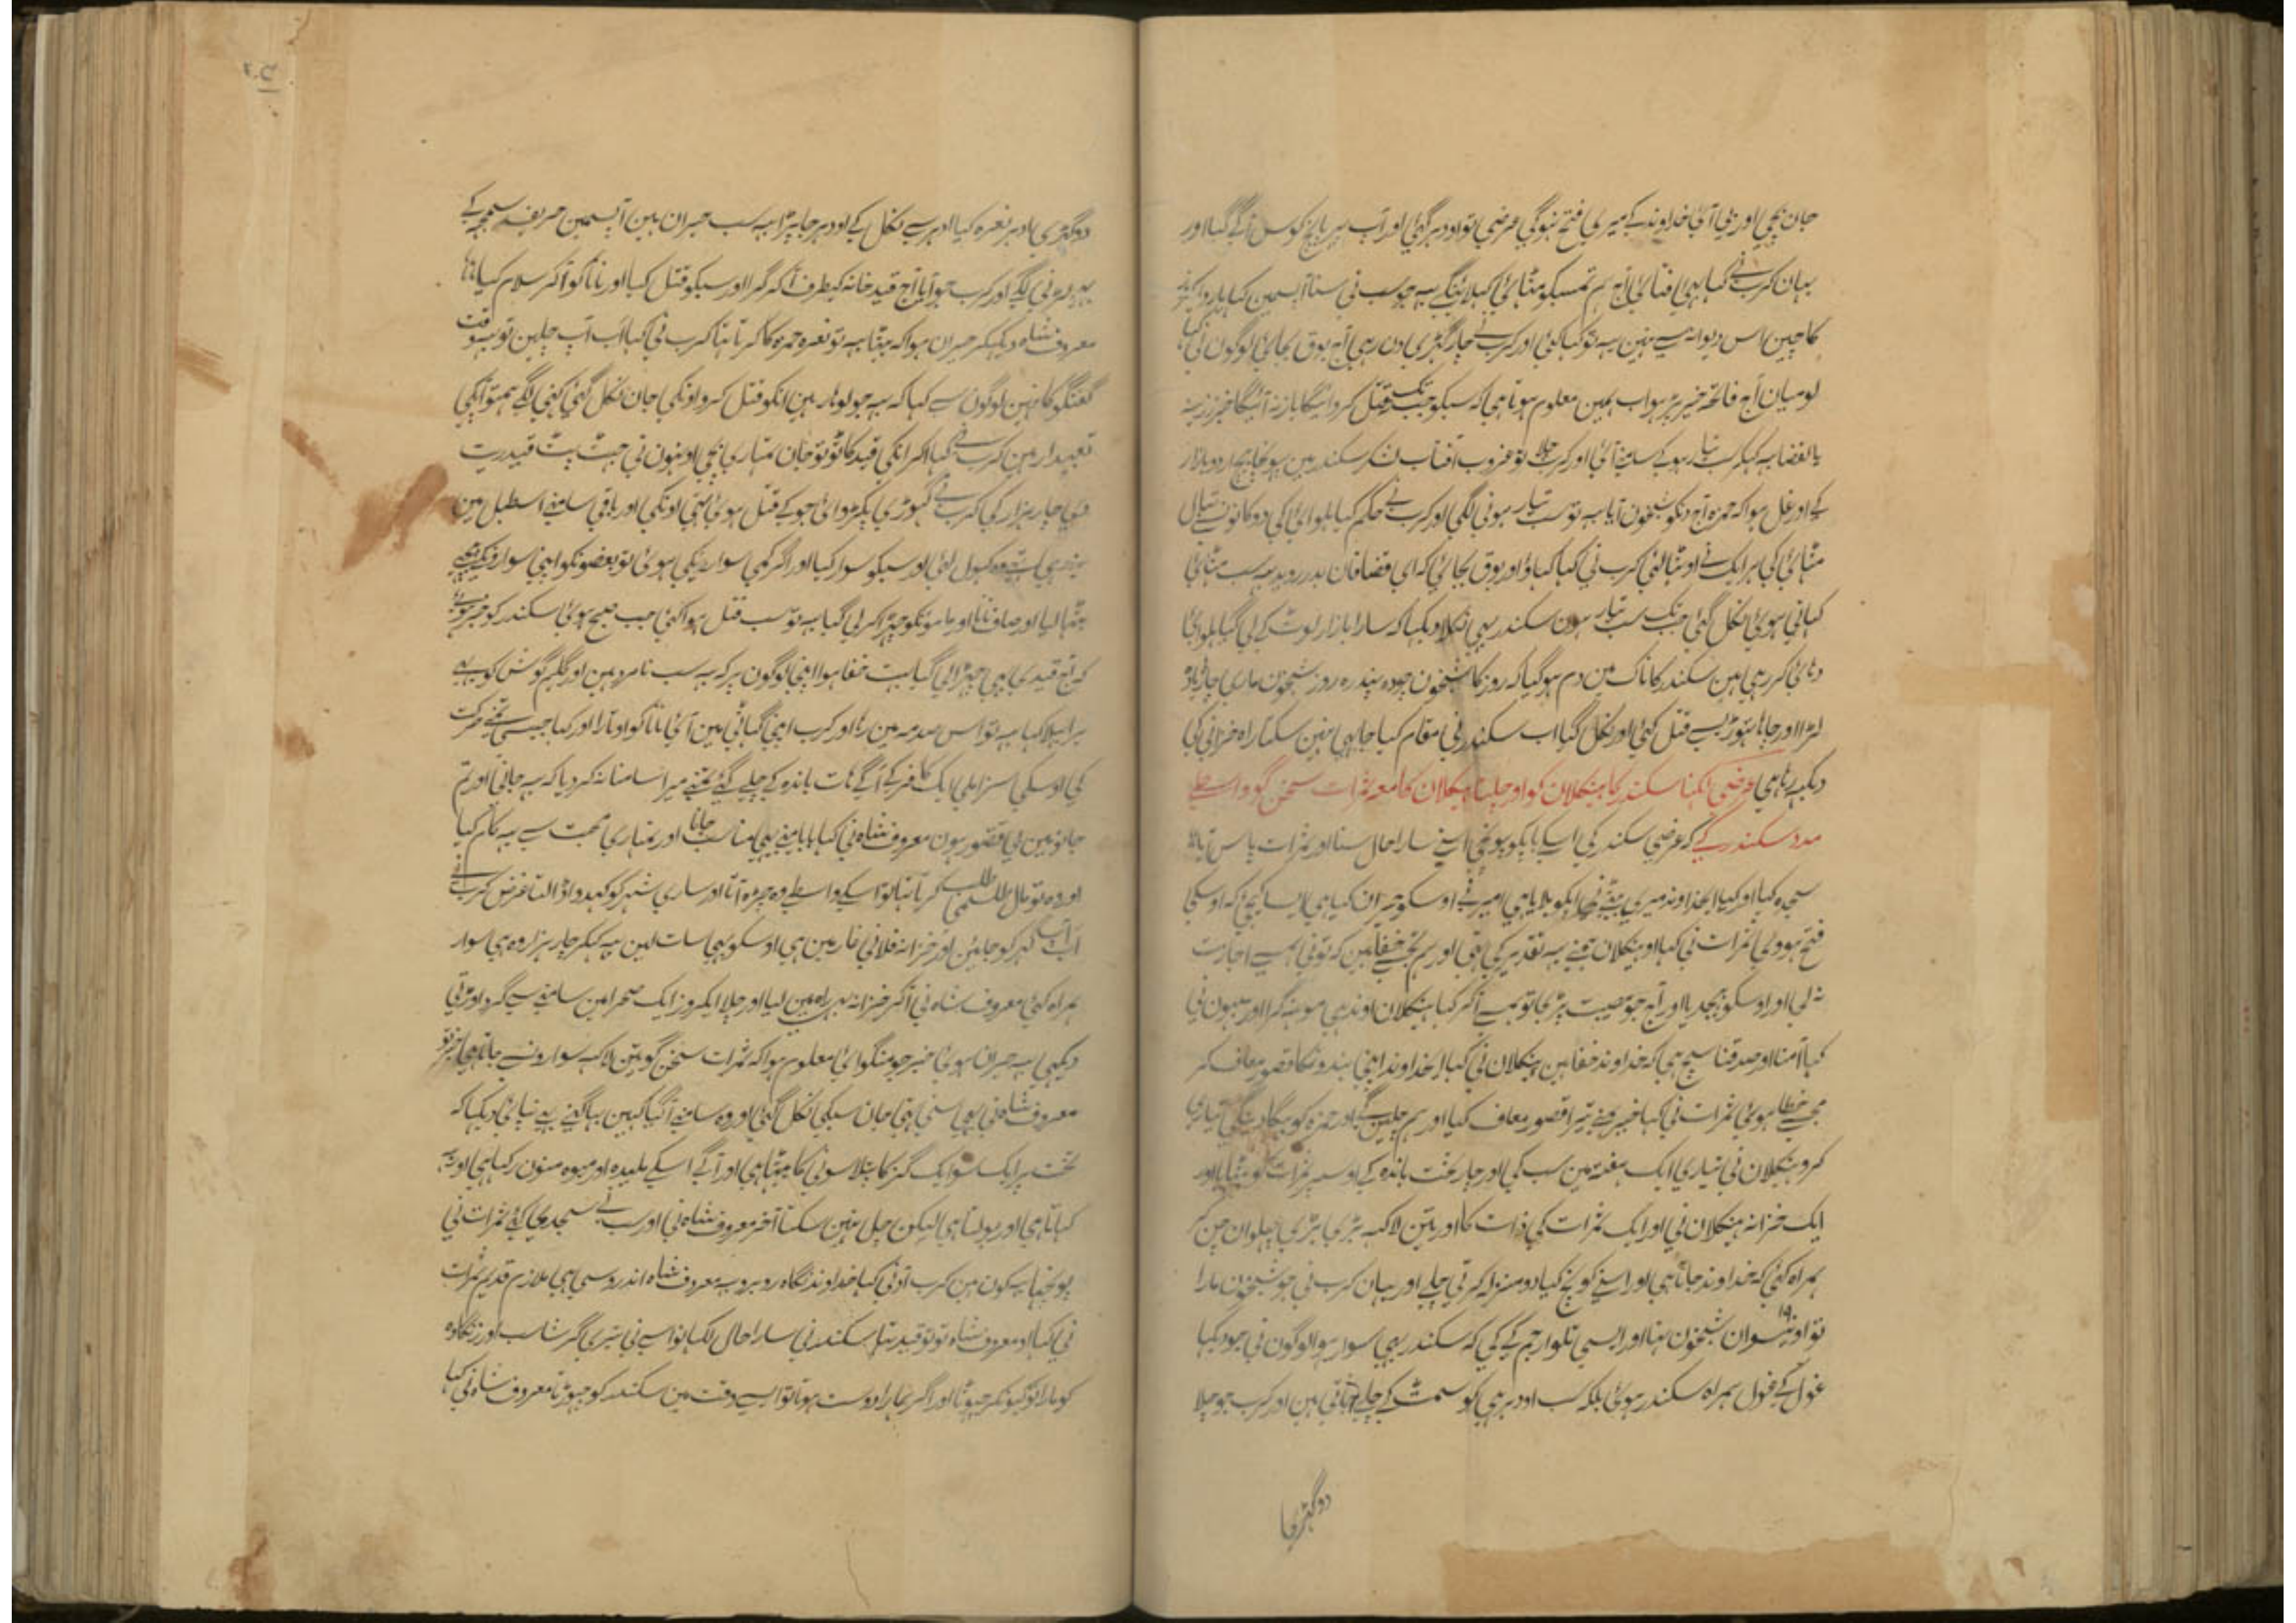 جان بچی اور نہیں آئی خداوند کے میری فتح نہوگی عرضی تو اودہر گئی اور آپ پر پانچ کوس آگے گیا اور
بیان کرب نے کہا بہی افتائی آج ہم تمسبکو مٹہائی کہلائینگے یہ جو سب نی سنا آپسمین کہا
کا چین اس دیوانہ سے نہین یہ تو کہا کئی اور کرب نے چار گہڑی دن رہی آج بوق بجائی لوگون نی کہا
لو میان آج فاتحہ خیر پڑہو اب ہمین معلوم ہوتا ہی کہ سبکو جب تک قتل کروائیگا باز نہ آئیگا
یا لغضا یہ کہکر سب تیار ہوکے سامنے آئی اور کرب چلا تو غروب آفتاب لشکر سکندر مین پہونچا بیچ اردو بازار
کے اور غل ہوا کہ حمزہ آج دنکو شبخون آیا یہ تو سب تیار ہونی لگی اور کرب نے حکم کیا حلوائی کی دوکانون سے تہال
مٹہائی کی ہر ایک نے اوٹہالئی کرب نی کہا کہاؤ اور بوق بجائی کہ ای قضاقان بدر روید یہ سب مٹہائی
کہاتی ہوئی نکل گئی جب تک سب تیار ہون سکندر بہی نکلا دیکہا کہ سارا بازار لوٹ کے لی گیا حلوائی
دہائی کر رہی ہین سکندر کا ناک مین دم ہوگیا کہ روز کا شبخون چودہ پندرہ روز شبخون ماری
لڑا اور جابجا تہوڑی سے قتل کئی اور نکل گیا اب سکندر نی مقام کیا جا بہی نہین سکتا راہ خزانی کی
دیکہہ رہا ہی عرضی لکہنا سکندر کا ہیکلان کو اور چلنا ہیکلان کا معہ ثمرات سخن گو واسطے
مدد سکندر کے کہ عرضی سکندر کی اسکے باپکو پہونچی اسنے سارا حال سنا اور ثمرات پاس آیا
سجدہ کیا اور کہا ایخداوند میری بیٹے نی آپکو بلایا ہی امیر نے اوسکو حیران کیا ہی ایسا کیجے کہ اوسکی
فتح ہووی ثمرات نی کہا او ہیکلان ہمنے یہ تقدیر کی تہی اور ہم تجسے خفا ہین کہ تو نی ہمسے اجازت
نہ لی اور اوسکو بہیجدیا اور آج جو مصیبت پڑی تو ہمسے آکر کہا ہیکلان اوندہی مونہہ گرا اور سبہون نی
کہا آمنا و صدقنا سچ ہی کہ خداوند خفا ہین ہیکلان نی کہا ایخداوند اپنی بندونکا قصور معاف کر
مجسے خطا ہوئی ثمرات نی کہا خیر مینے تیرا قصور معاف کیا اور ہم چلینگے اور حمزہ کو بہگا دینگی تیاری
کرو ہیکلان نی تیاری ایک ہفتہ مین سب کی اور چار تخت باندہ کے اوسپر ثمرات کو بٹہایا اور
ایک خزانہ ہیکلان نی اور ایک ثمرات کی ذات کا اور تین لاکہہ بڑی بڑی پہلوان چن کر
ہمراہ کئی کہ خداوند جاتا ہی اور اسنے کوچ کیا دو منزلہ کرتی چلے اور بیان کرب نی جو شبخون مارا
تو اونیسوان ۱۹ شبخون تہا اور ایسی تلوار جم کے کی کہ سکندر بہی سوار ہوا لوگون نی جو دیکہا
غول کے غول ہمراہ سکندر ہوئی بلکہ سب اودہر ہی کو سمٹ کے چلے جاتی ہین اور کرب جو چلا
دو گہڑی
دو گہڑی باد پر نعرہ کیا ادہر سے نکل کے اودہر جا پڑا یہ سب حیران ہین آپسمین حریف سمجہہ کے
لڑنی لگے اور کرب جو آیا آج قید خانہ کیطرف آکر گرا اور سبکو قتل کیا اور نانا کو آکر سلام کیا
معروف شاہ دیکہکر حیران ہوا کہ بیٹا یہ تو نعرہ حمزہ کا کرتا تہا کرب نی کہا اب آپ چلین تو یہ وقت
گفتگو کا نہین لوگون سے کہا کہ یہ جو لوہار ہین انکو قتل کرو اونکی جان نکل گئی کہنی لگے ہمتو آپکی
تعبیدار ہین کرب نے کہا اگر انکی قید کاٹو تو جان تمہاری بچی اونہون نی جہٹ پٹ قید ریت
دی چار ہزار کی کرب نے گہوڑی پکڑوائی جو کے قتل ہوئی تہی اونکی اور باقی سامنے اسطبل مین
بندہی تہے وہ کہول لئی اور سبکو سوار کیا اور اگر کمی سواریکی ہوئی تو بعضونکو اپنی سوارونکے پیچہے
بٹہا لیا اور صاف نانا اور مامونکو چہڑا کر لی گیا یہ تو سب قتل ہوا کئی جب صبح ہوئی سکندر کو خبر ہوئی
کہ آج قیدی بہی چہڑا لی گیا بہت خفا ہوا اپنی لوگون پر کہ یہ سب نامرد ہین اور گلیم گوش کو بہی
برا بہلا کہا یہ تو اس صدمہ مین رہا اور کرب اپنی گہاٹی مین آئی نانا کو اوتارا اور کہا جیسی تمنے حرکت
کی اوسکی سزا ملی ایک کافر کے آگے ہات باندہ کے چلے گئے تمنے میرا سامنا نہ کر دیا کہ یہ جانی اور تم
جانو مین بی قصور ہون معروف شاہ نی کہا بابا مینے یہی مناسب جانا اور تمہاری محبت سے یہ کام کیا
اور وہ تو مال طلسمی طلب کرتا تہا تو اسکے واسطے وہ چڑہ آتا اور ساری شہر کو کہدوا ڈالتا غرض کرب نے
اب آپ گہر کو جائین اور خزانہ فلانی غار مین ہی اوسکو بہی سات لین یہ کہکر چار ہزار وہ ہی سوار
ہمراہ کئی معروف شاہ نی آکر خزانہ بہی راہ مین لیا اور چلا ایکروز ایک صحرا مین سامنے سے گرد اوڑتی
دیکہی یہ حیران ہوئی خبر جو منگوائی معلوم ہوا کہ ثمرات سخن گو تین لاکہہ سوارونسے جاتا ہی
معروف شاہ نی بہی سنی اپنی جان سبکی نکل گئی اور وہ سامنے آگیا کہین بہاگنے بہی نہ پائی دیکہا کہ
تخت پر ایک سو ایک گز کا پتلا سونی کا بیٹہا ہی اور آگے اسکے ملیدہ اور میوہ منون رکہا ہی اور یہ
کہاتا ہی اور بولتا ہی لیکن چل نہین سکتا آخر معروف شاہ نی اور سب نے سجدی کئے ثمرات نی
پوچہا یہ کون ہین کرب آدنی کہا خداوند نگاہ روبرو یہ معروف شاہ اندروسی ہی ملازم قدیم ثمرات
نی کہا او معروف شاہ تو تو قید تہا سکندر نی سارا حال لکہا تو اسے نی تیری گرشاسب اور زنگاوہ
کو مارا تو کیونکر چہوٹا اور اگر ہمارا دوست ہوتا تو ایسے وقت مین سکندر کو چہوڑتا معروف شاہ نی کہا